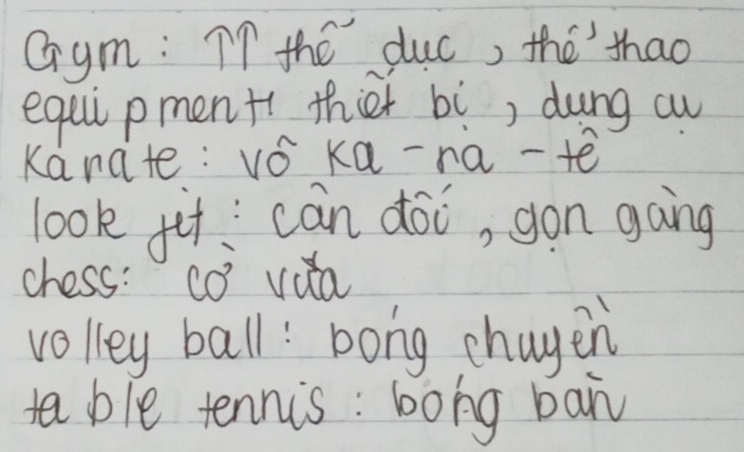 Gym: TT thể dục, thể thao
equipment: thiết bị, dụng cụ
Karate: võ Ka-ra-tê
look fit: cân đối, gọn gàng
chess: cờ vua
volley ball: bóng chuyền
table tennis: bóng bàn